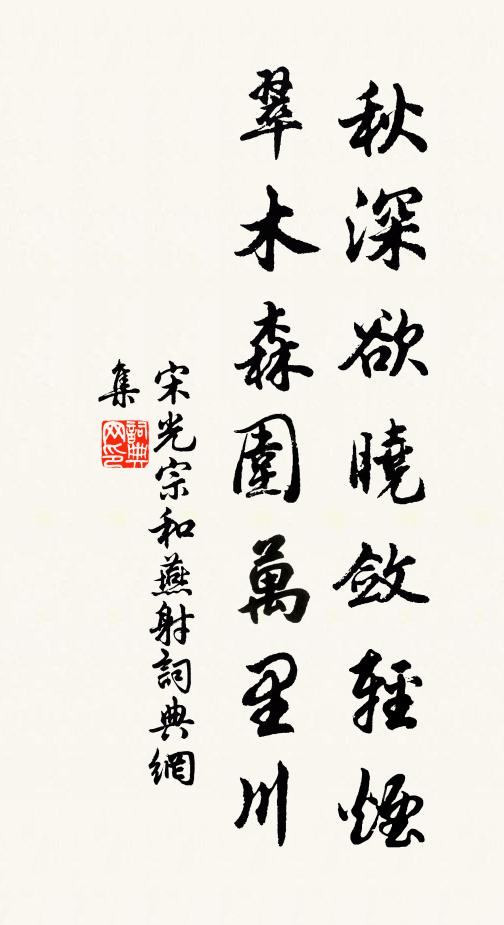 秋深欲曉斂輕煙
翠木森圍萬里川
宋光宗和燕射詞典網
集
詞典
网印